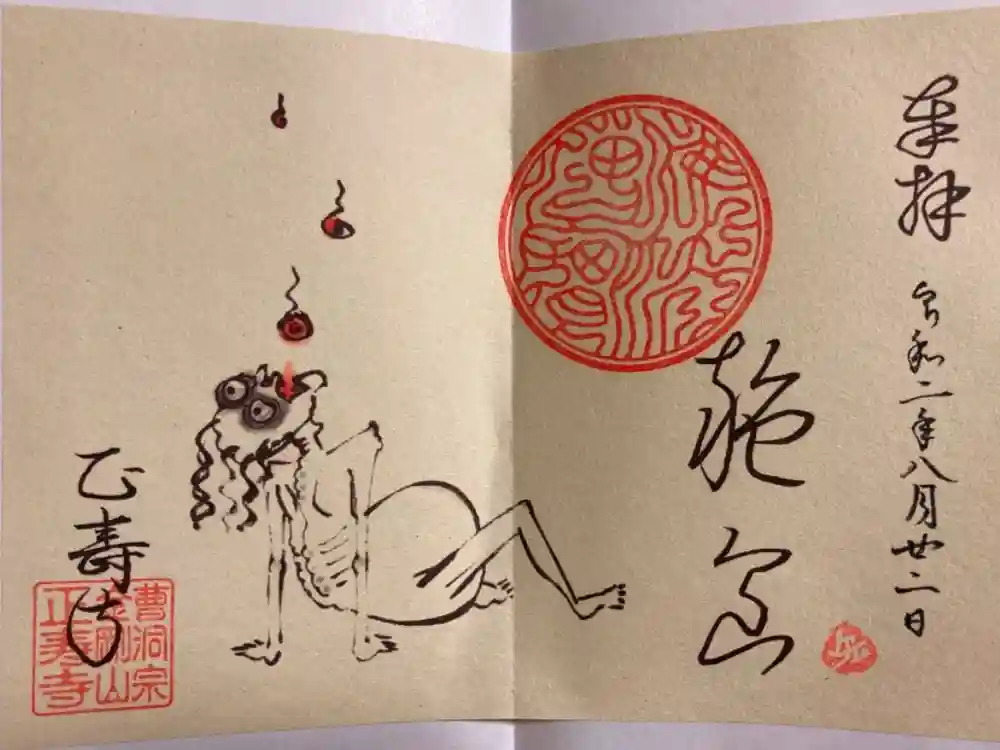 奉拝
令和二年八月廿二日
施食
正壽寺
曹洞宗
金剛山
正寿寺